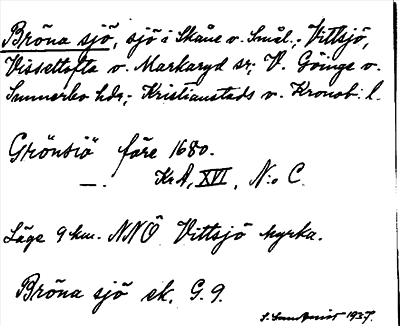 Bröna sjö, sjö i Skåne o. Smål.; Vittsjö,
Visseltofta o. Markaryd sr; V. Göinge o.
Sunnerbo hdr; Kristianstads o. Kronob. l.
Grönsiö före 1680.
—. KrA, XVI, N:o C.
Läge 9 km. NNÖ Vittsjö kyrka.
Bröna sjö ek. G. 9.
1937.